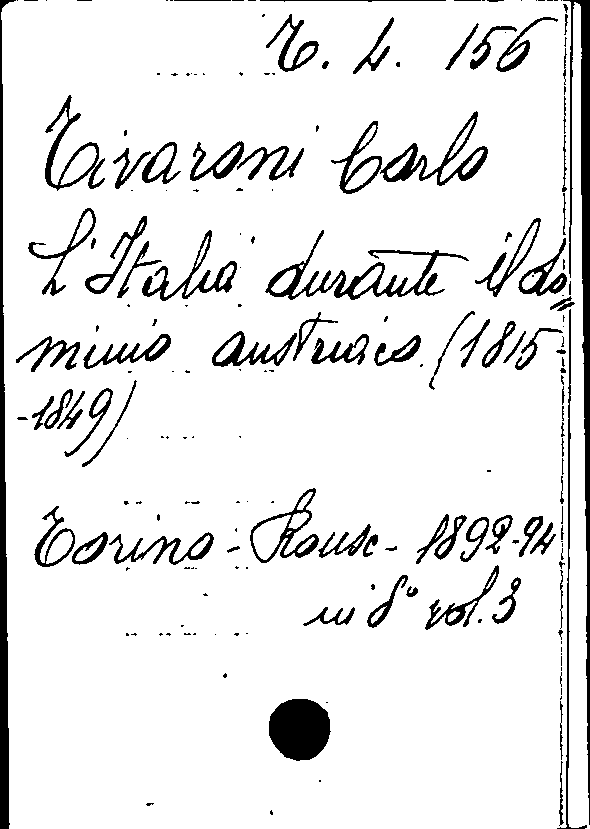 T. L. 156
Tivaroni Carlo
L'Italia durante il do=
minio austriaco (1815-
-1849)
Torino - Roux - 1892-94
in 8° vol. 3